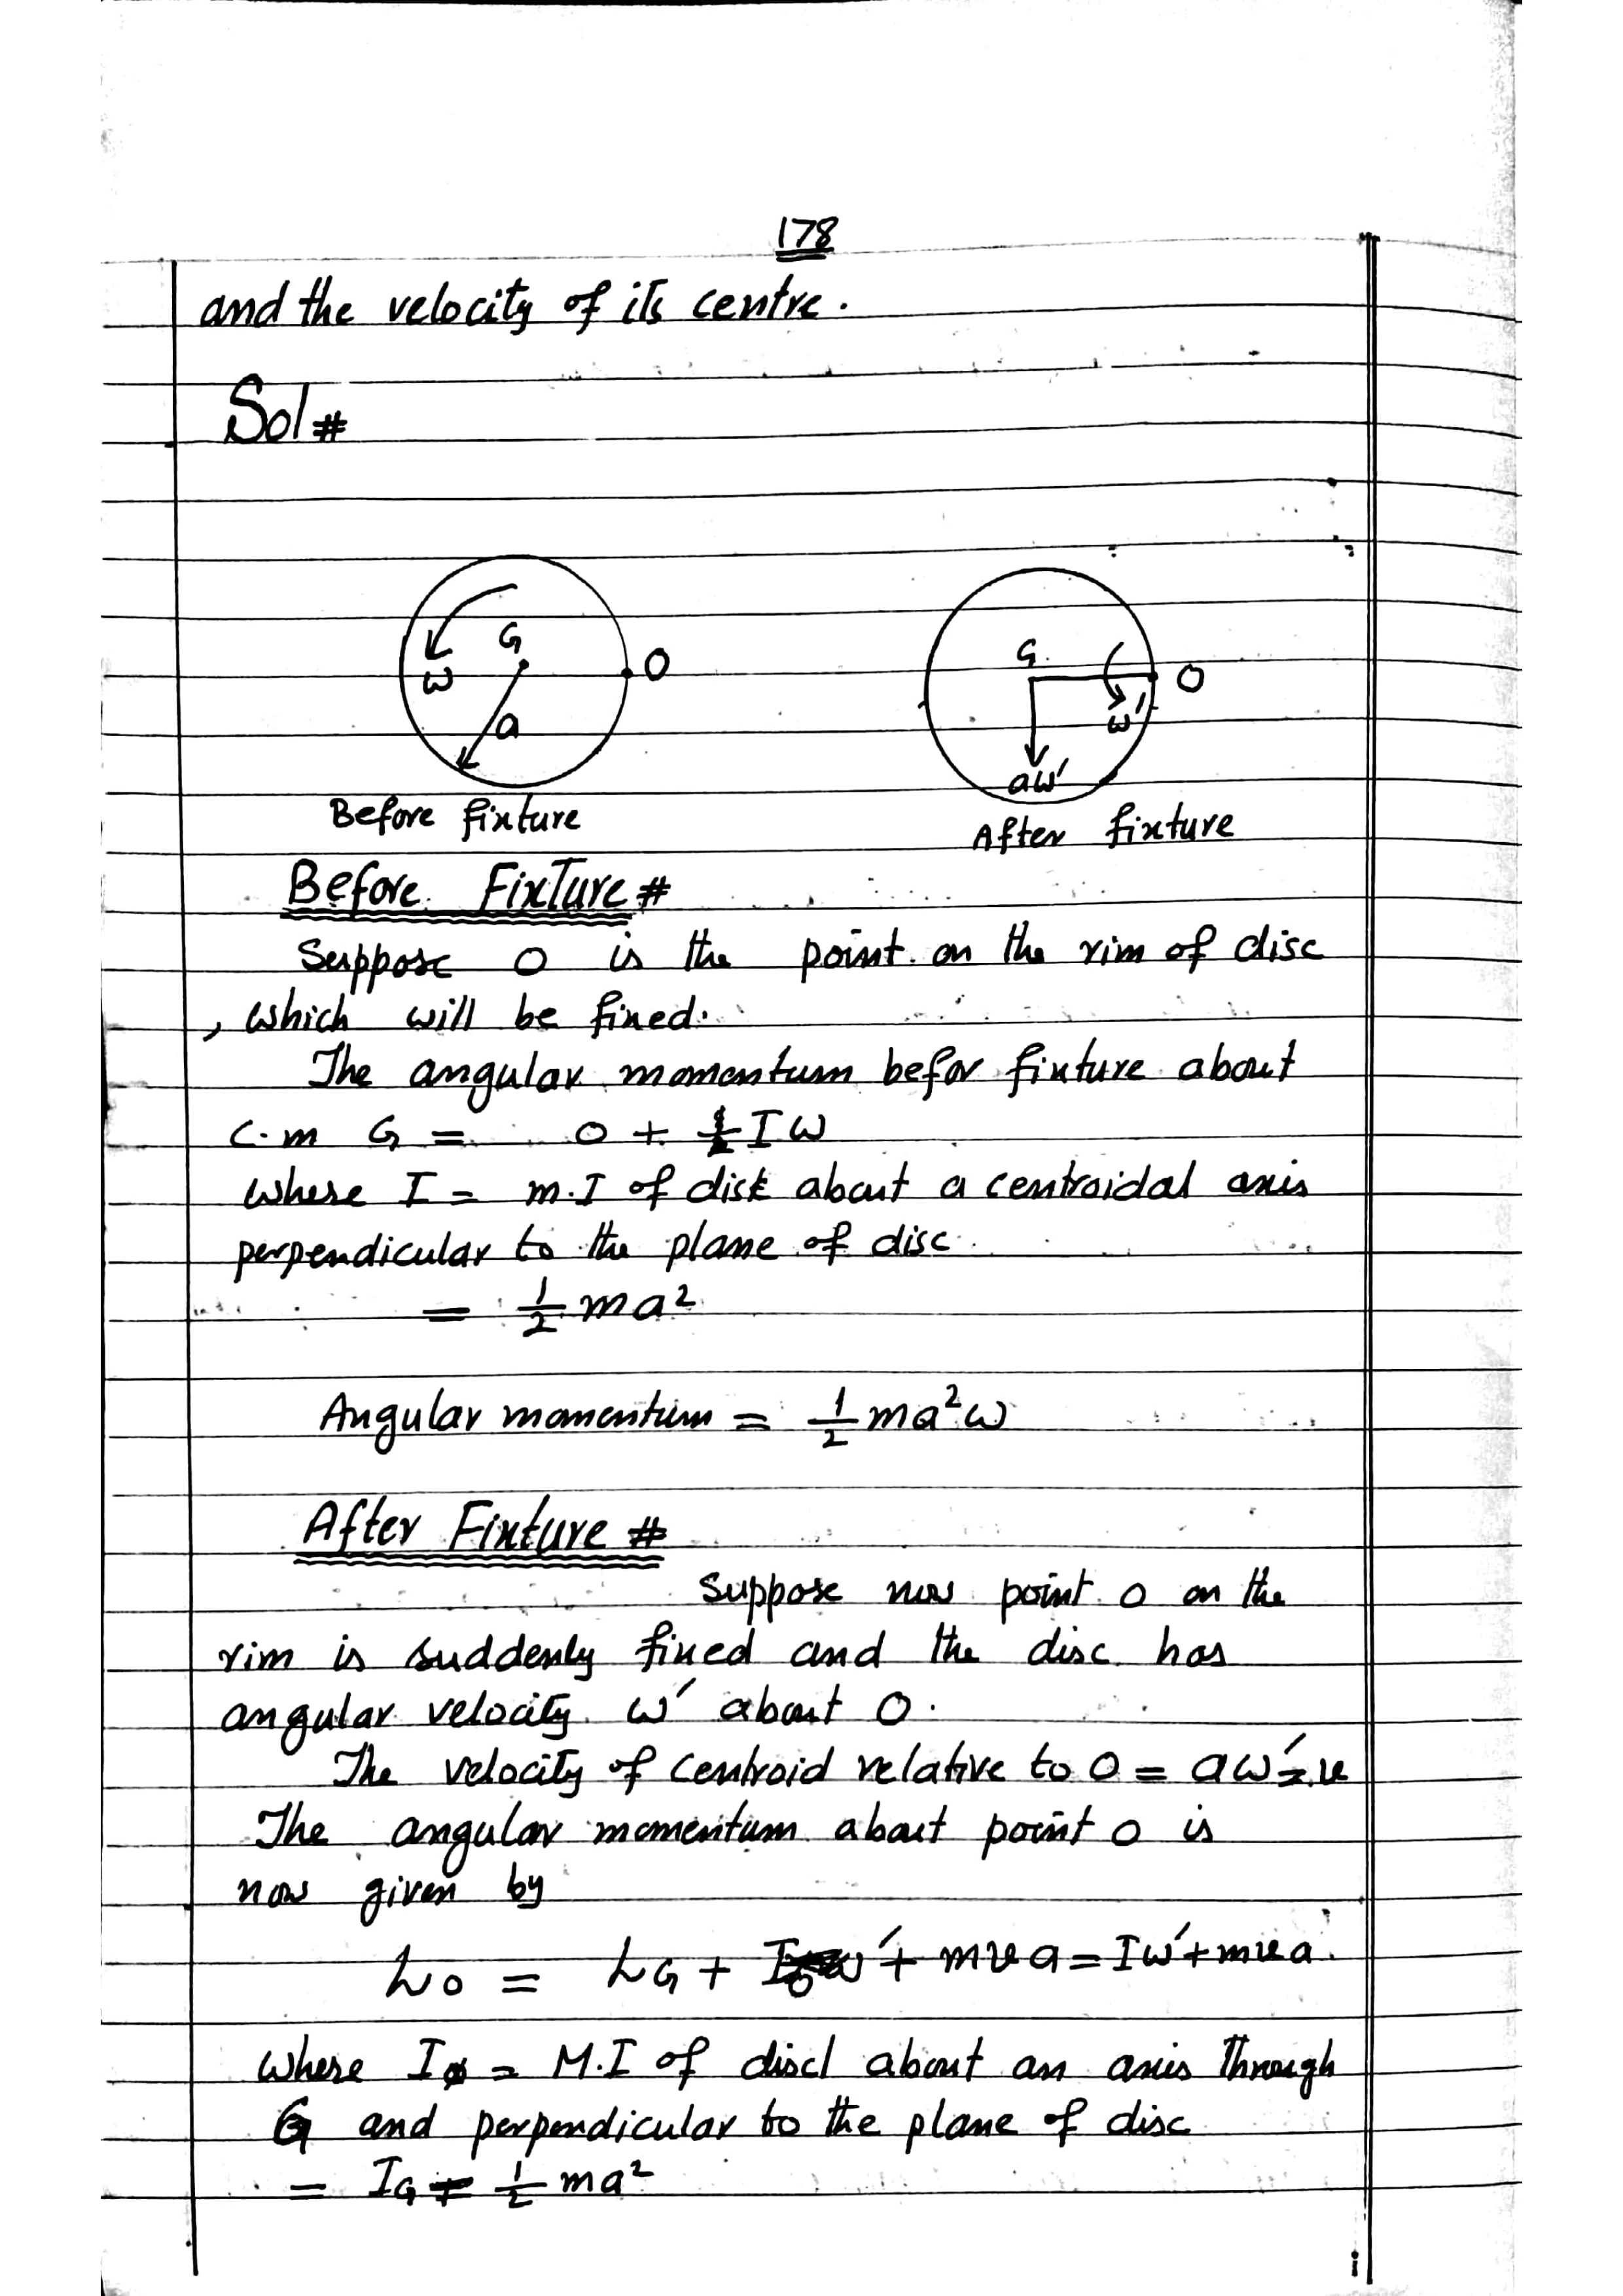 178
and the velocity of its centre.
Sol #
G
ω
a
O
G
O
ω'
aω'
Before fixture
After fixture
Before Fixture #
Suppose O is the point on the rim of disc
, which will be fixed.
The angular momentum befor fixture about
C.m G = 0 + Iω
where I = m.I of disk about a centroidal axis
perpendicular to the plane of disc
= 1/2 ma²
Angular momentum = 1/2 ma²ω
After Fixture #
Suppose now point O on the
rim is suddenly fixed and the disc has
angular velocity ω' about O.
The velocity of centroid relative to O = aω' = v
The angular momentum about point O is
now given by
LO = LG + + mva = Iω' + mva.
where I = M.I of disc about an axis through
G and perpendicular to the plane of disc
= IG = 1/2 ma²